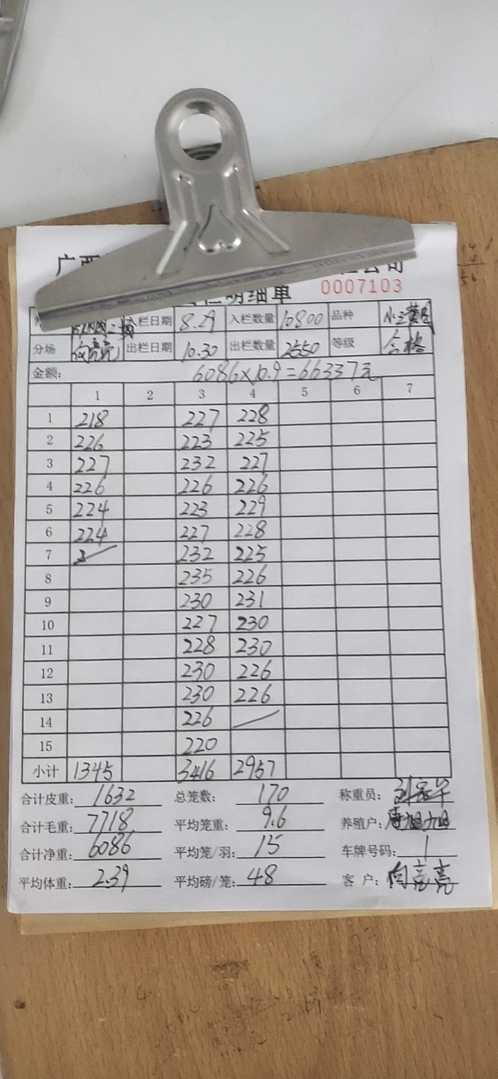 广西 公司
出栏明细单
0007103
栏日期 8.29 入栏数量 10800 品种
分场 向亮亮 出栏日期 10.30 出栏数量 2550 等级 合格
金额: 6086×10.9=66337元
1 2 3 4 5 6 7
1 218 227 228
2 226 223 225
3 227 232 227
4 226 226 226
5 224 223 229
6 224 227 228
7 232 225
8 235 226
9 230 231
10 227 230
11 228 230
12 230 226
13 230 226
14 226
15 220
小计 1345 3416 2957
合计皮重: 1632 总笼数: 170 称重员:
合计毛重: 7718 平均笼重: 9.6 养殖户:
合计净重: 6086 平均笼/羽: 15 车牌号码:
平均体重: 2.39 平均磅/笼: 48 客 户: 向亮亮